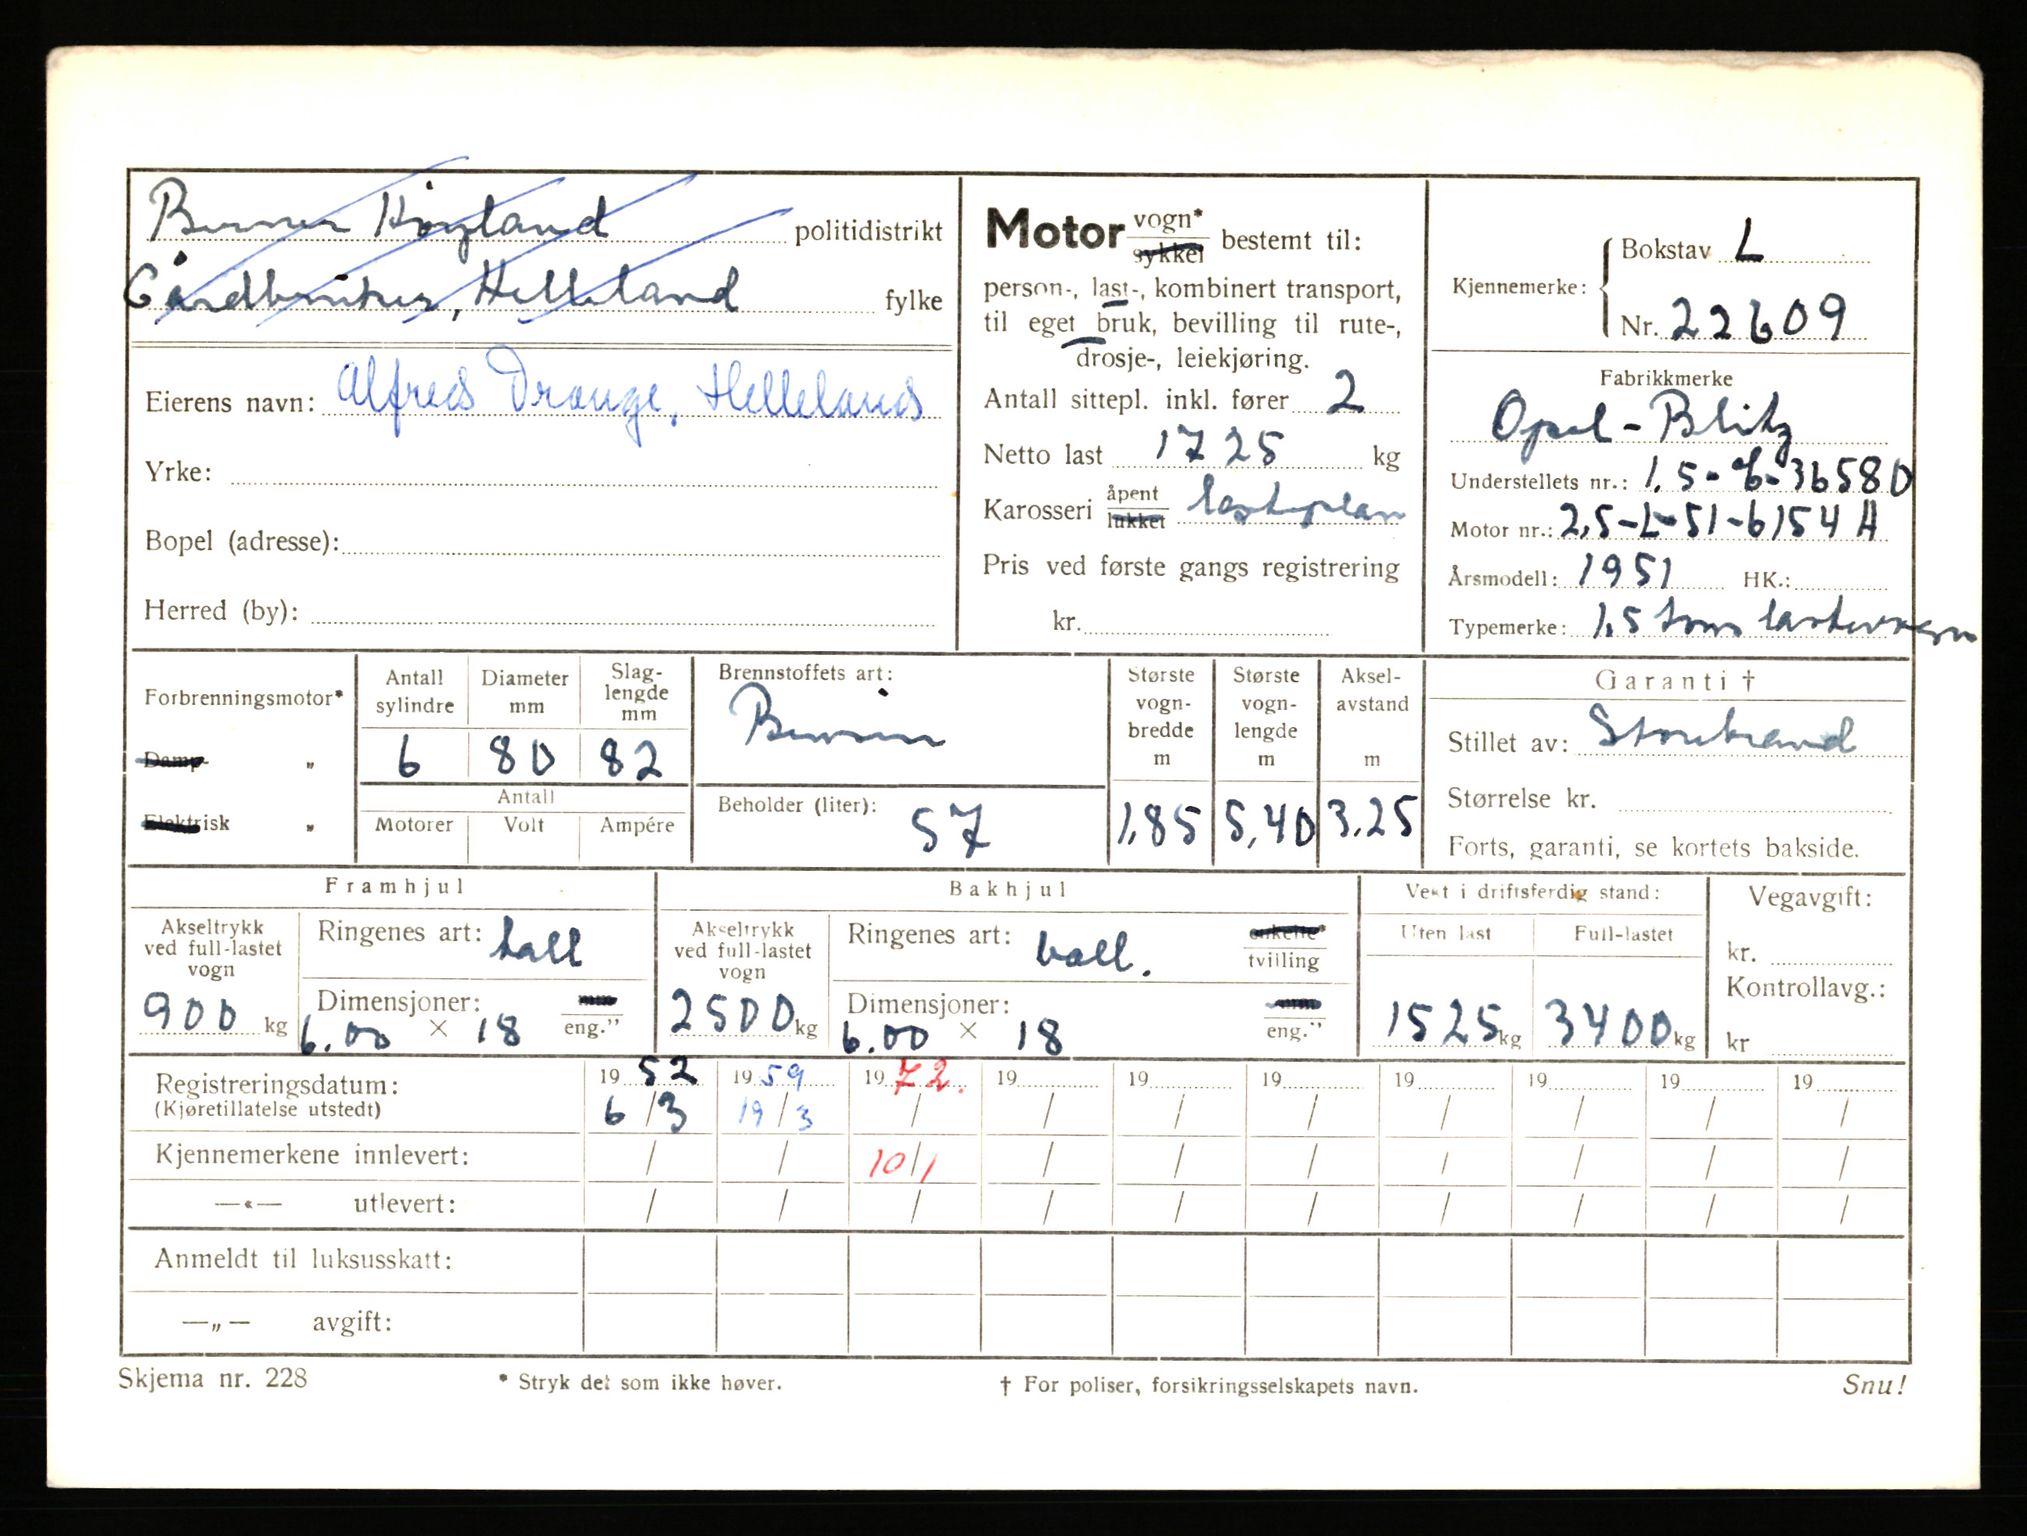 Berner Høyland politidistrikt
Gårdbruker, Helleland fylke
Eierens navn: Alfred Drange, Helleland
Yrke:
Bopel (adresse):
Herred (by):
Motor vogn* sykkel bestemt til:
person-, last-, kombinert transport,
til eget bruk, bevilling til rute-,
drosje-, leiekjøring.
Antall sittepl. inkl. fører 2
Netto last 1725 kg
Karosseri åpent lukket lasteplan
Pris ved første gangs registrering
kr.
Kjennemerke: Bokstav L
Nr. 22609
Fabrikkmerke
Opel-Blitz
Understellets nr.: 1,5- -36580
Motor nr.: 2,5-L-51-6154 A
Årsmodell: 1951 HK.:
Typemerke: 1,5 tons lastevogn
Forbrenningsmotor*
Damp „
Elektrisk „
Antall sylindre
Diameter mm
Slag-lengde mm
6 80 82
Antall
Motorer Volt Ampére
Brennstoffets art:
Bensin
Beholder (liter): 57
Største vogn-bredde m
Største vogn-lengde m
Aksel-avstand m
1,85 5,40 3,25
Garanti †
Stillet av: Storebrand
Størrelse kr.
Forts, garanti, se kortets bakside.
Framhjul
Akseltrykk ved full-lastet vogn
900 kg
Ringenes art: ball
Dimensjoner: eng."
6.00 × 18
Bakhjul
Akseltrykk ved full-lastet vogn
2500 kg
Ringenes art: ball. enkelte* tvilling
Dimensjoner: eng."
6.00 × 18
Vekt i driftsferdig stand:
Uten last Full-lastet
1525 kg 3400 kg
Vegavgift:
kr.
Kontrollavg.:
kr
Registreringsdatum: 19 52 19 59 19 72. 19 19 19 19 19 19 19
(Kjøretillatelse utstedt) 6/3 19/3 / / / / / / / /
Kjennemerkene innlevert: / / 10/1 / / / / / / /
—«— utlevert: / / / / / / / / / /
Anmeldt til luksusskatt:
—„— avgift:
Skjema nr. 228 * Stryk det som ikke høver. † For poliser, forsikringsselskapets navn. Snu!